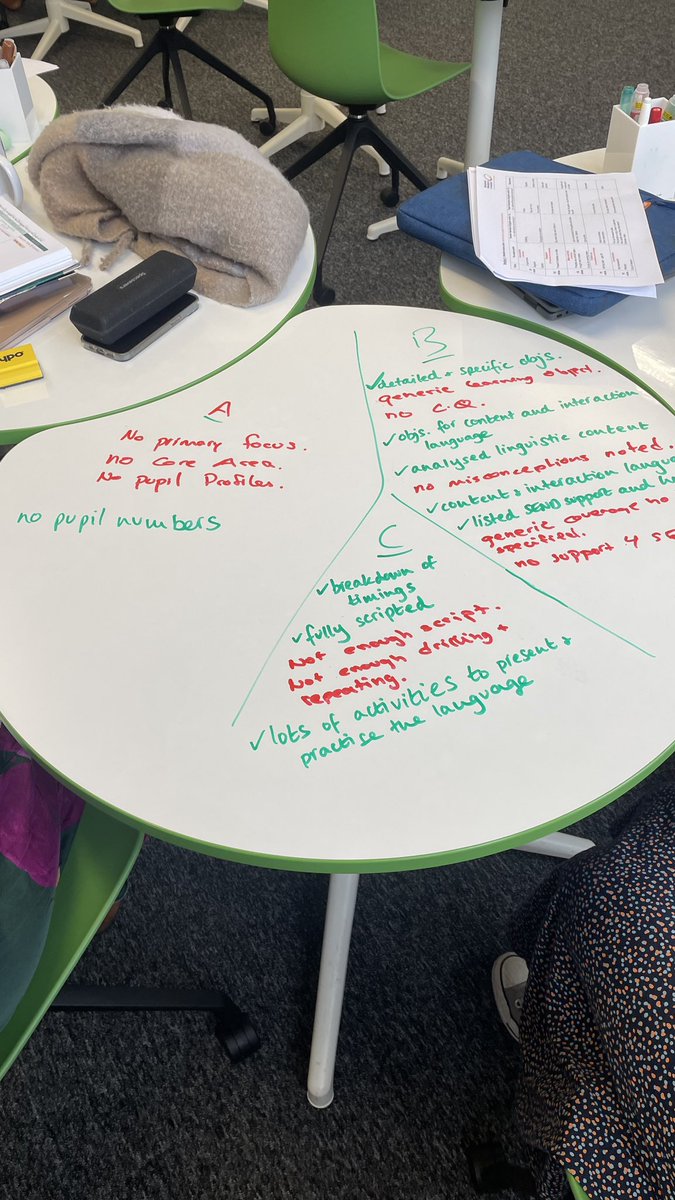 A
No primary focus.
no Core Area.
No pupil Profiles.
no pupil numbers
B
✓detailed + specific objs.
generic learning object.
no C.Q.
✓objs. for content and interaction
language
✓analysed linguistic content
no misconceptions noted.
✓content + interaction langua
✓listed SEND support and
generic coverage no
specified.
no support 4 SE
C
✓breakdown of
timings
✓fully scripted
Not enough script.
Not enough drilling +
repeating.
✓lots of activities to present +
practise the language